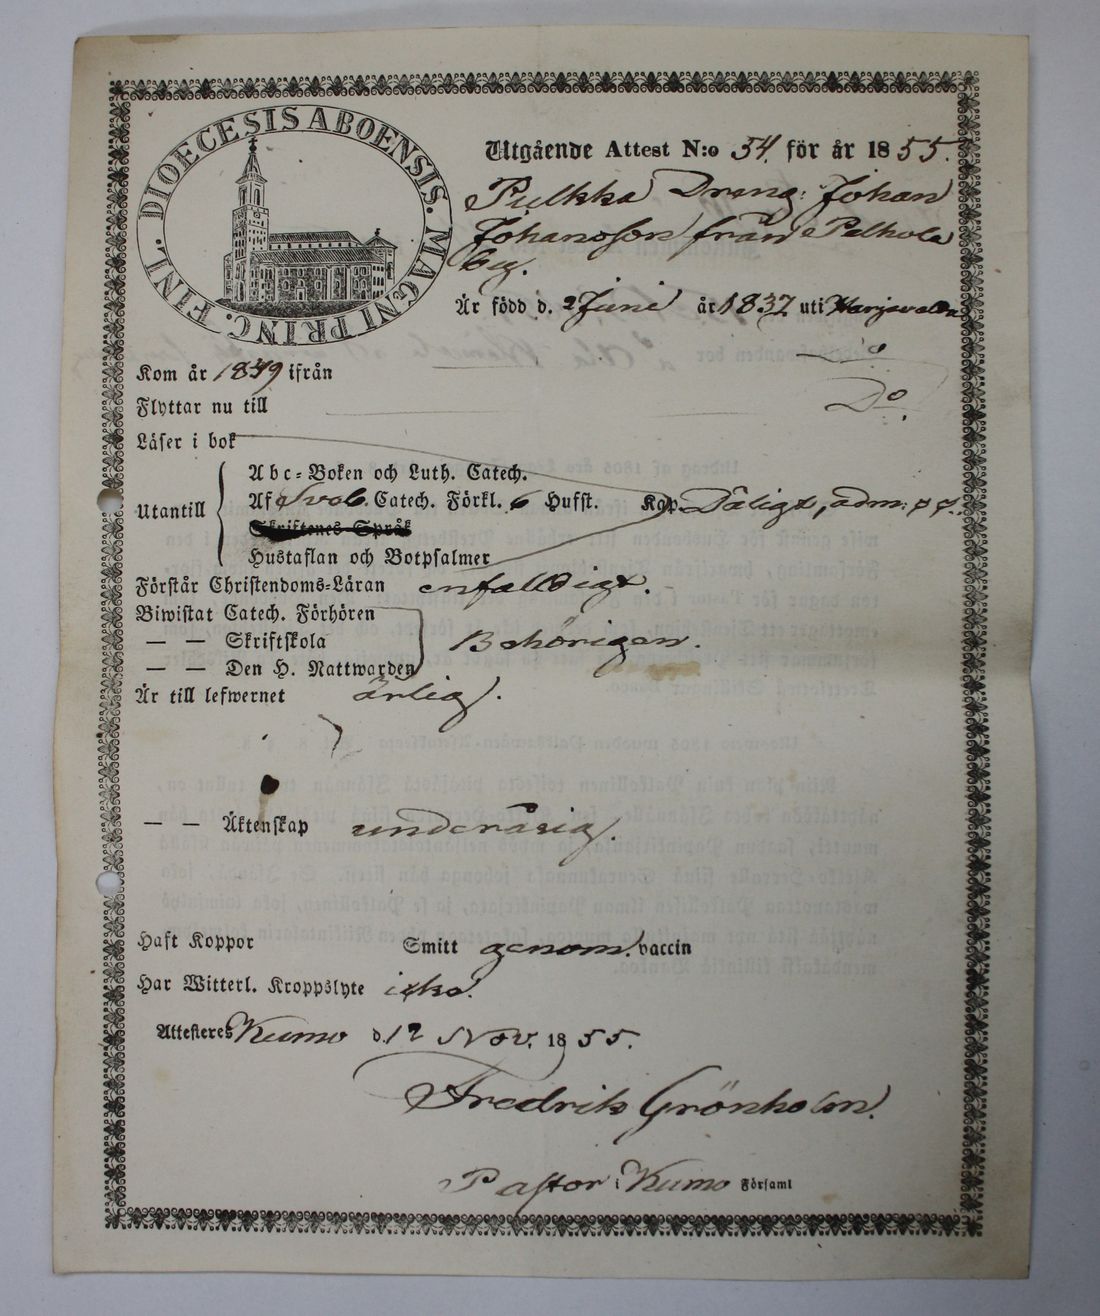 DIOECESIS ABOENSIS. MAGNI PRINC. FINL.
Utgående Attest N:o 54 för år 1855.
Pulkka Dreng: Johan
Johansson från Pelhola
by.
Är född d. 2 Juni år 1837 uti Harjavalda
Kom år 1849 ifrån Do
Flyttar nu till Do.
Läser i bok
Utantill
Abc-Boken och Luth. Catech.
Af Sveb. Catech. Förkl. 6 Hufst. Kap. Dåligt, adm:
Skriftenes Språk
Hustaflan och Botpsalmer
Förstår Christendoms-Läran enfaldigt.
Biwistat Catech. Förhören
— — Skriftskola Behörigen.
— — Den H. Nattwarden
Är till lefwernet ärlig.
— — Äktenskap underårig.
Haft Koppor Smitt genom vaccin
Har Witterl. Kroppslyte icke.
Attesteres Kumo d. 12 Nov. 1855.
Fredrik Grönholm.
Pastor i Kumo Församl